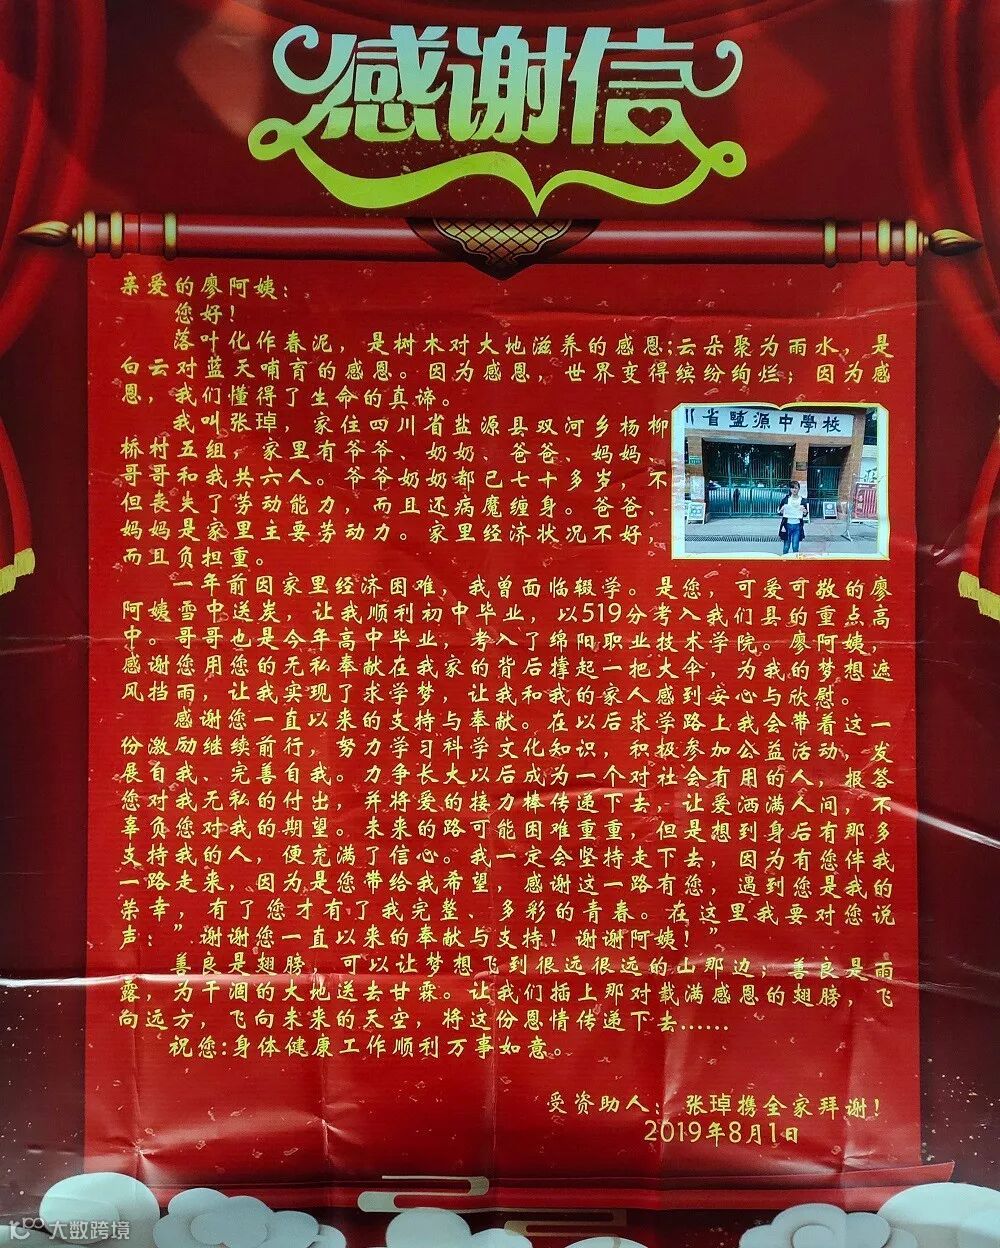 感谢信
亲爱的廖阿姨：
您好！
落叶化作春泥，是树木对大地滋养的感恩；云朵聚为雨水，是
白云对蓝天哺育的感恩。因为感恩，世界变得缤纷绚烂；因为感
恩，我们懂得了生命的真谛。
我叫张琸，家住四川省盐源县双河乡杨柳
桥村五组，家里有爷爷、奶奶、爸爸、妈妈、
哥哥和我共六人。爷爷奶奶都已七十多岁，不
但丧失了劳动能力，而且还病魔缠身。爸爸、
妈妈是家里主要劳动力。家里经济状况不好，
而且负担重。
川省鹽源中學校
一年前因家里经济困难，我曾面临辍学。是您，可爱可敬的廖
阿姨雪中送炭，让我顺利初中毕业，以519分考入我们县的重点高
中。哥哥也是今年高中毕业，考入了绵阳职业技术学院。廖阿姨，
感谢您用您的无私奉献在我家的背后撑起一把大伞，为我的梦想遮
风挡雨，让我实现了求学梦，让我和我的家人感到安心与欣慰。
感谢您一直以来的支持与奉献。在以后求学路上我会带着这一
份激励继续前行，努力学习科学文化知识，积极参加公益活动，发
展自我、完善自我。力争长大以后成为一个对社会有用的人，报答
您对我无私的付出，并将爱的接力棒传递下去，让爱洒满人间，不
辜负您对我的期望。未来的路可能困难重重，但是想到身后有那多
支持我的人，便充满了信心。我一定会坚持走下去，因为有您伴我
一路走来，因为是您带给我希望，感谢这一路有您，遇到您是我的
荣幸，有了您才有了我完整、多彩的青春。在这里我要对您说
声：”谢谢您一直以来的奉献与支持！谢谢阿姨！”
善良是翅膀，可以让梦想飞到很远很远的山那边；善良是雨
露，为干涸的大地送去甘霖。让我们插上那对载满感恩的翅膀，飞
向远方，飞向未来的天空，将这份恩情传递下去……
祝您：身体健康工作顺利万事如意。
受资助人：张琸携全家拜谢！
2019年8月1日
大数跨境